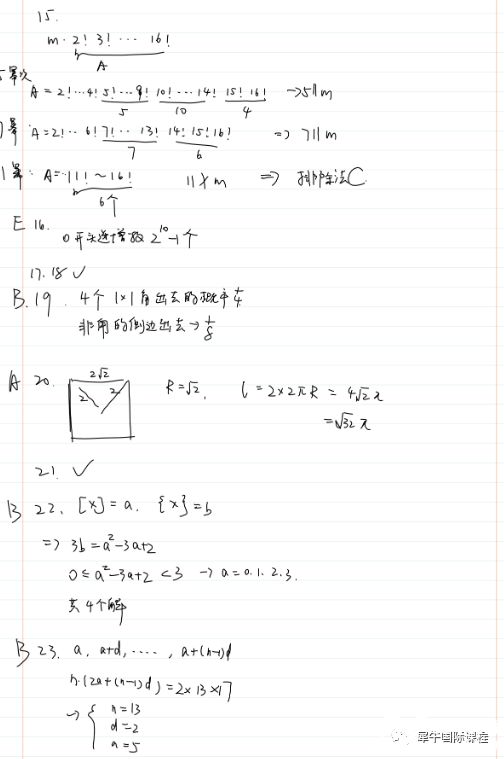 15.
m · 2! 3! ··· 16!
A
5幂次 A = 2!···4! 5!···9! 10!···14! 15! 16! → 5||m
5 10 4
7幂: A = 2!··· 6! 7!··· 13! 14! 15! 16! => 7||m
7 6
幂: A = 11! ~ 16! 11∤m => 排除法C
6个
E 16.
0开头递增数 2^10-1个
17. 18 ✓
B. 19. 4个 1×1 角出去的概率 1/4
非角的侧边出去 → 1/8
A 20. 2√2 R=√2, l = 2×2πR = 4√2π
2 2 =√32 π
21. ✓
B 22. [x]=a, {x}=b
=> 3b = a²-3a+2
0 ≤ a²-3a+2 < 3 → a=0.1.2.3.
共4个解
B 23. a, a+d, ····, a+(n-1)d
n·(2a+(n-1)d) = 2×13×17
→ { n=13
d=2
a=5
犀牛国际课程